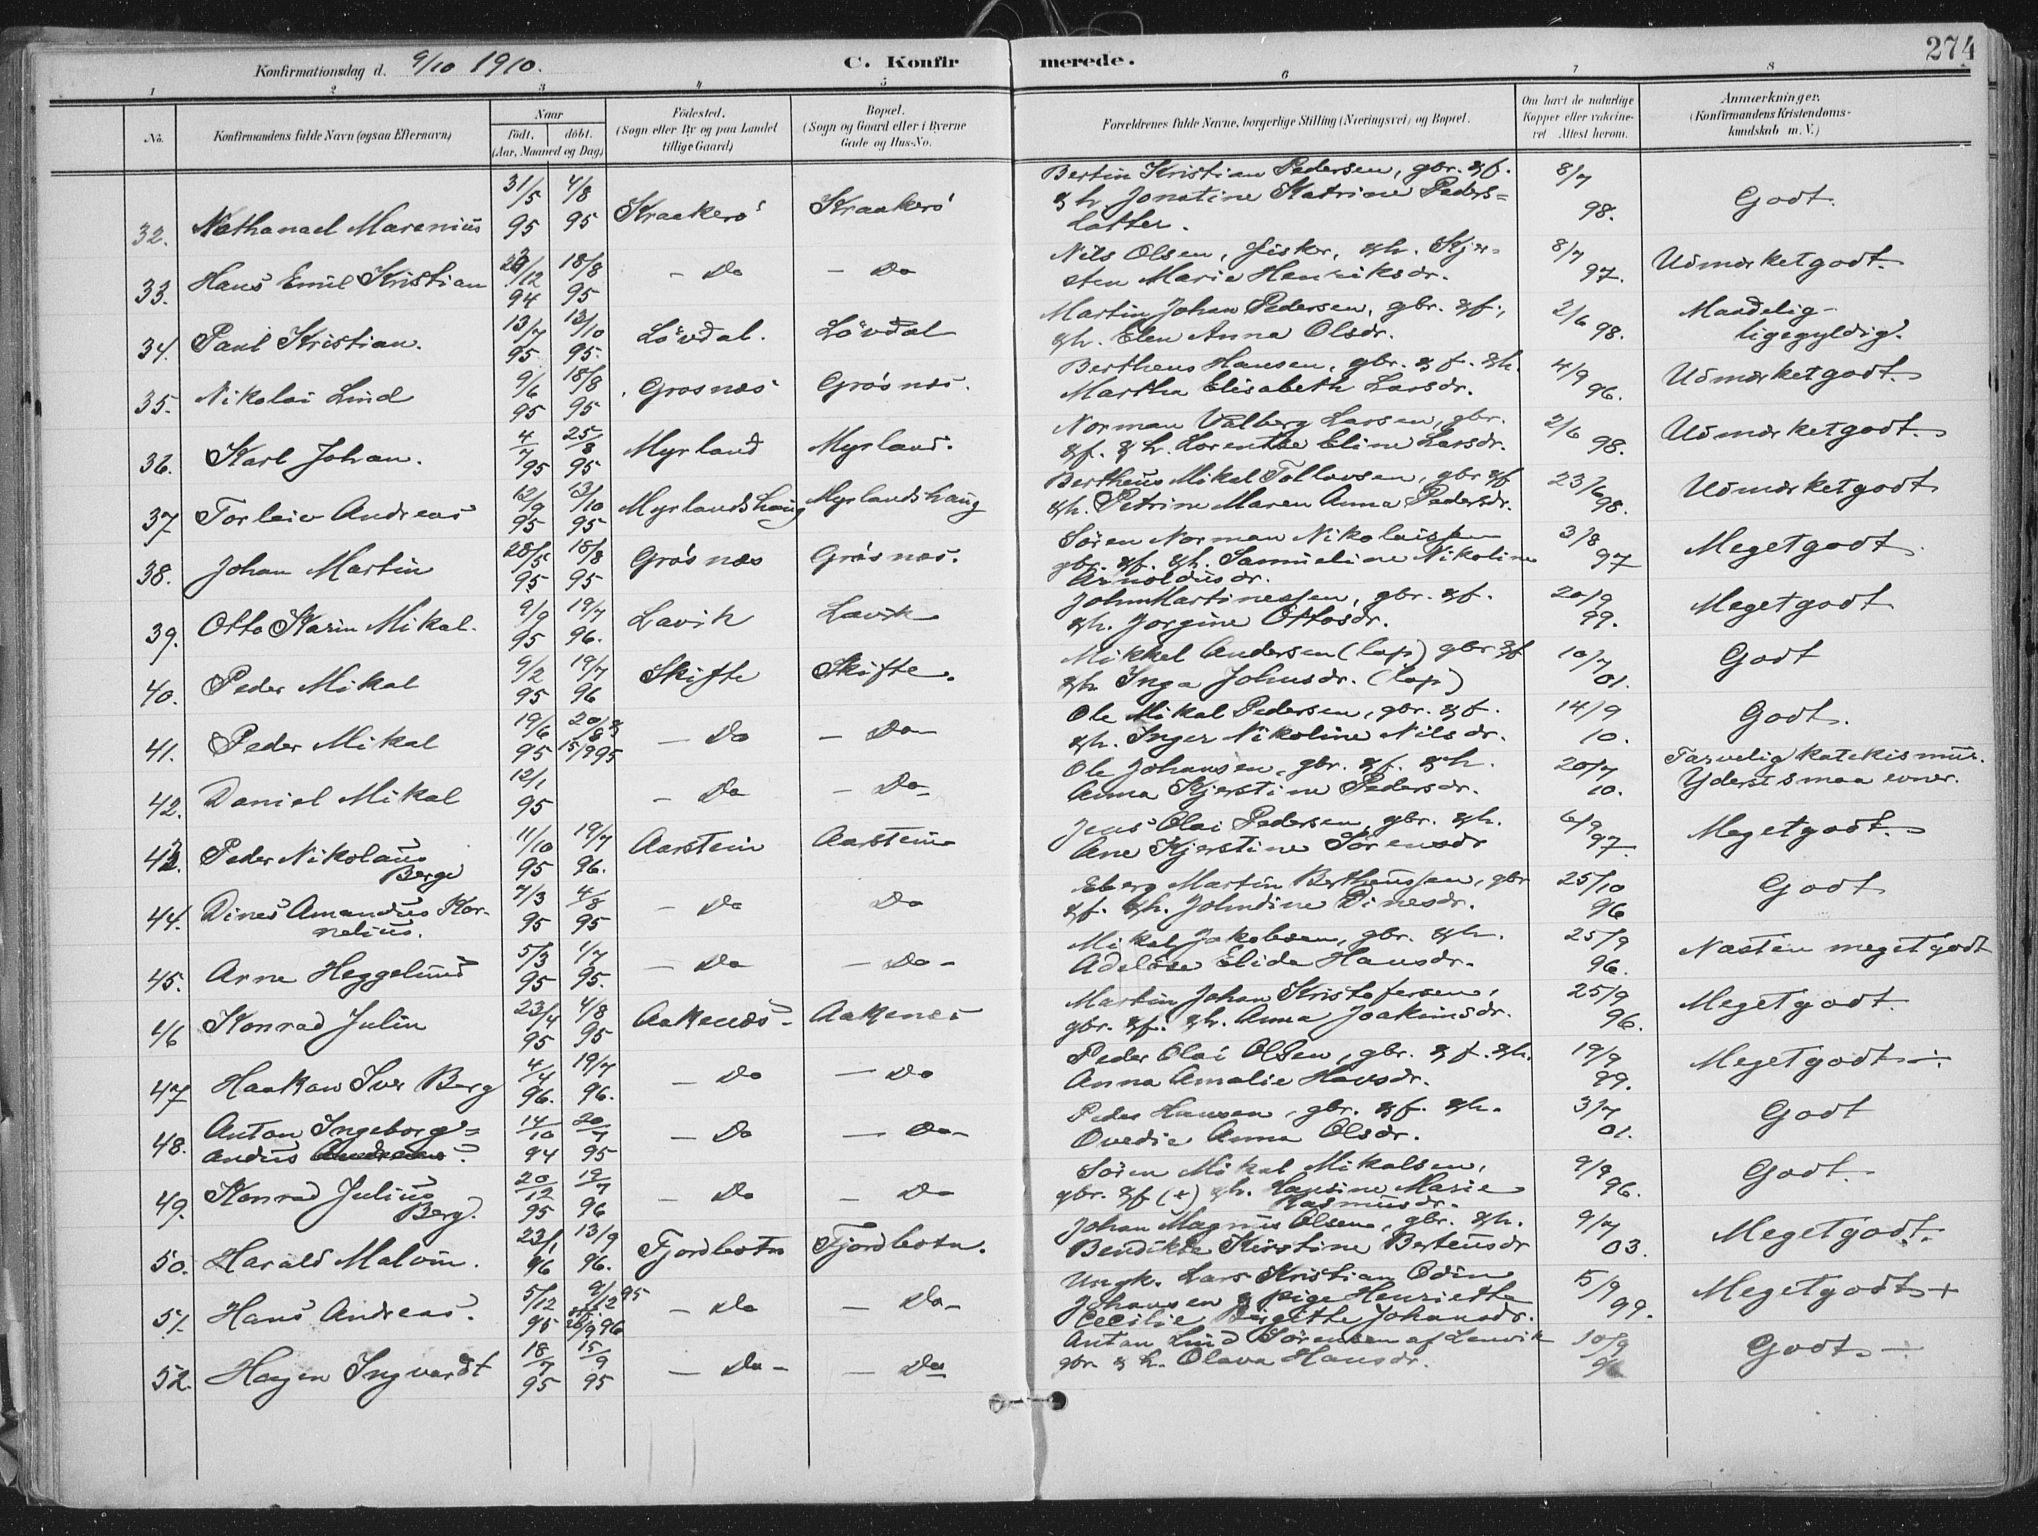 274
Konfirmationsdag d. 9/10 1910. C. Konfirmerede.
1 2 3 4 5 6 7 8
No. Konfirmandens fulde Navn (ogsaa Efternavn) Naar Födested. Bopæl. Forældrenes fulde Navne, borgerlige Stilling (Næringsvei) og Bopæl. Om havt de naturlige Anmærkninger.
födt. döbt. (Sogn eller By og paa Landet (Sogn og Gaard eller i Byerne Kopper eller vaccine- (Konfirmandens Kristendoms-
(Aar, Maaned og Dag) tillige Gaard) Gade og Hus-No. ret Attest herom. kundskab m. V.)
32. Nathanael Marenius 31/5 95 4/8 95 Kraakerö Kraakerö Bertin Kristian Pedersen, gbr. & f.
& h. Jonetine Katrine Peders=
datter. 8/7 98. Godt.
33. Hans Emil Kristian 12 94 18/8 95 - Do - Do Nils Olsen, fisker, & h. Kjer-
sten Marie Henriksdr. 8/7 97. Udmærketgodt.
34. Paul Kristian. 13/7 95 13/10 95. Lövdal. Lövdal Martin Johan Pedersen, gbr. & f.,
& h. Elen Anna Olsdr. 2/6 98. Maadelig-
ligegyldig.
35. Nikolai Lind 9/6 95 18/8 95 Grosnæs Grösnæs. Berthens Hansen, gbr. & f. & h.
Martha Elisabeth Larsdr. 4/9 96. Udmærketgodt.
36. Karl Johan. 4/7 95 25/8 95 Myrland Myrland. Norman Valberg Larsen, gbr.
& f. & h. Lorentse Eline Larsdr. 2/6 98. Udmærketgodt.
37 Torleiv Andreas 12/9 95 13/10 95 Myrlandshaug Myrlandshaug Bertheus Mikal Tollevsen, gbr & f
& h. Petrine Maren Anna Pedersdr. 23/6 98. Udmærketgodt
38. Johan Martin 28/5 95 18/8 95 Grösnæs Grösnæs. Sören Norman Nikolaisen
gbr. & f. & h. Samueline Nikoline
Arnoldusdr. 3/8 97 Megetgodt.
39. Otto Karin Mikal. 9/9 95 19/7 96. Lavik Lavik John Martinessen, gbr. & f.
& h. Jorgine Ottosdr. 20/9 99. Megetgodt
40. Peder Mikal 9/2 95 19/7 96 Skifte Skifte. Mikkel Andersen (lap) gbr & f
& h. Inga Johnsdr. (lap) 10/7 01. Godt
41. Peder Mikal 19/6 95 20/8 & 15/9 95 - Do - Do- Ole Mikal Pedersen, gbr. & f.
& h. Inger Nikoline Nilsdr. 14/9 10. Godt.
42. Daniel Mikal 12/1 95 - Do - Do- Ole Johansen, gbr. & f. & h.
Anna Kjerstine Pedersdr. 20/7 10. Tarvelig katekismus.
Yderst smaa evner.
43. Peder Nikolaus
Berge 11/10 95 19/7 96. Aarstein Aarstein Jens Olai Pedersen, gbr. & h.
Ane Kjerstine Sörensdr 6/9 97. Megetgodt.
44. Dines Amandus Kor-
nelius. 7/3 95 4/8 95 - Do Do Eberg Martin Bertheussen, gbr
& f. & h. Johndine Dinesdr. 25/10 96 Godt
45. Arne Heggelund 5/3 95 1/7 95. - Do - Do- Mikal Jakobsen, gbr. & h.
Adelöse Elida Hansdr. 25/9 96. Næsten megetgodt
46 Konrad Julin 23/4 95 4/8 95 Aakenæs- Aakenes Martin Johan Kristofersen,
gbr. & f. & h. Anna Joakimsdr. 25/9 96. Megetgodt.
47 Haakon Iver Berg 4/4 96. 19/7 96. - Do - Do Peder Olai Olsen, gbr. & f. & h.
Anna Amalie Hansdr. 19/9 99. Megetgodt-
48. Anton Ingeborg=
andus 14/10 94 20/7 95 - Do - Do- Peder Hansen, gbr. & f. & h.
Ovedie Anna Olsdr. 3/7 01. Godt
49. Konrad Julius
Berg. 20/12 95 19/7 96 - Do - Do Sören Mikal Mikalsen,
gbr. & f (+) & h. Hansine Marie
Rasmusdr. 9/9 96. Godt.
50. Harald Malvin. 23/1 96 13/9 96. Fjordbotn Fjordbotn. Johan Magnus Olsen, gbr. & h.
Bendikte Kirstine Berteusdr 9/7 03. Megetgodt.
51. Hans Andreas. 5/12 95 9/12 95 20/9 96 - Do - Do- Ungk. Lars Kristian Odin
Johansen & pige Henriette
Cecilie Birgitte Johansdr. 5/9 99. Megetgodt +
52. Hagen Ingvardt 18/7 95 15/9 95 - Do- - Do Anton Lind Sörensen af Lenvik
gbr & h. Olava Hansdr. 10/9 Godt.-